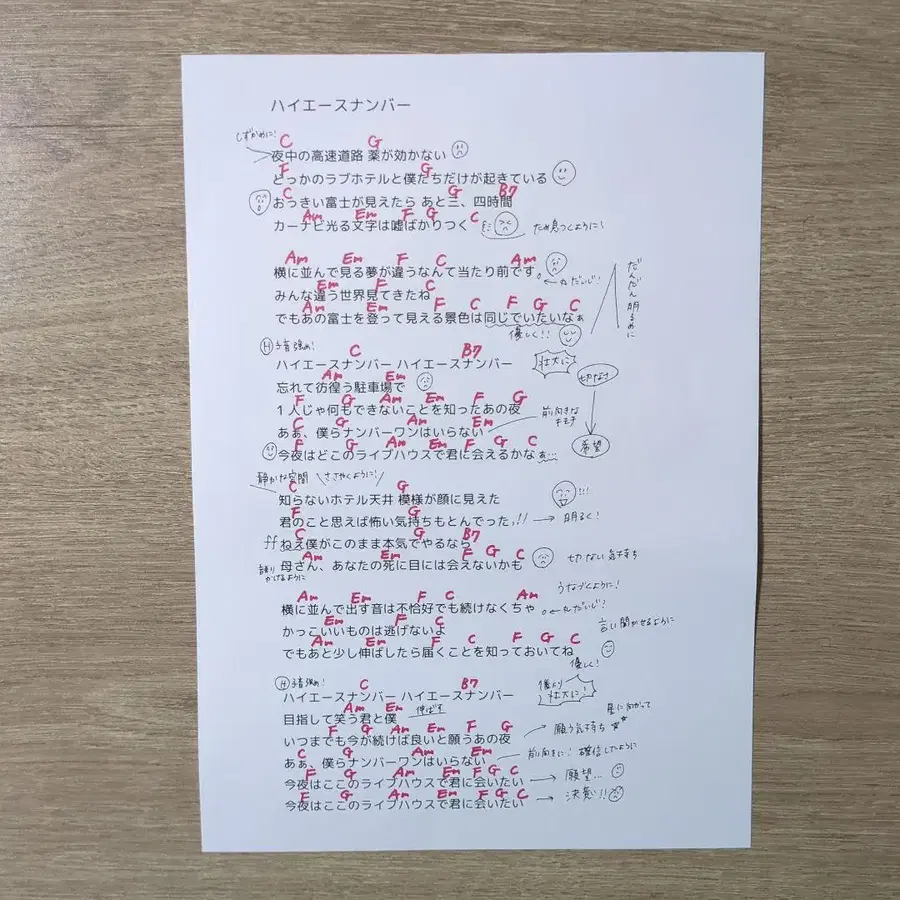 ハイエースナンバー
しずかめに!
C G
夜中の高速道路 薬が効かない
F G
どっかのラブホテルと僕だちだけが起きている
C G B7
おっきい富士が見えたら あと三、四時間
Am Em F G C
カーナビ光る文字は嘘ばかりつく ため息つくように!
Am Em F C Am
横に並んで見る夢が違うなんて当たり前です。 ←丸だいじ!
Em F C
みんな違う世界見てきたね
だんだん明るめに
Am Em F C F G C
でもあの富士を登って見える景色は同じでいたいなぁ
優しく!!
H 強め!
C B7
ハイエースナンバー ハイエースナンバー 壮大に!
Am Em
忘れて彷徨う駐車場で
切なさ
F G Am Em F G
1人じゃ何もできないことを知ったあの夜
C G Am Em
あぁ、僕らナンバーワンはいらない 前向きなキモチ
F G Am Em F G C
今夜はどこのライブハウスで君に会えるかなぁ…
希望
静かな空間 \ささやくように!/
C G
知らないホテル天井 模様が顔に見えた !!!
F G
君のこと思えば怖い気持ちもとんでった!! → 明るく!
C G B7
ff ねえ僕がこのまま本気でやるなら
Am Em F G C
母さん、あなたの死に目には会えないかも 切ない気持ち
語りかけるように
うなづくように!
Am Em F C Am
横に並んで出す音は不恰好でも続けなくちゃ。←丸だいじ!
Em F C
かっこいいものは逃げないよ
言い聞かせるように
Am Em F C F G C
でもあと少し伸ばしたら届くことを知っておいてね
優しく!
H 強め!
C B7
ハイエースナンバー ハイエースナンバー
壮大に!
Am Em
目指して笑う君と僕 伸ばす
星に向かって
F G Am Em F G
いつまでも今が続けば良いと願うあの夜 願う気持ち
C G Am Em
あぁ、僕らナンバーワンはいらない 前向きに!確信したように
F G Am Em F G C
今夜はここのライブハウスで君に会いたい → 願望…
F G Am Em F G C
今夜はここのライブハウスで君に会いたい → 決意!!